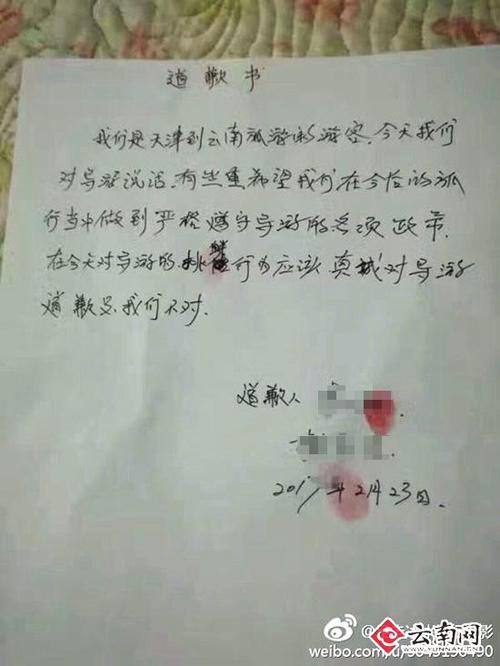 道歉书
我们是天津到云南旅游的游客.今天我们
对导游说话.有些重希望我们在今后的旅
行当中做到严格遵守导游的各项政策.
在今天对导游的.挑行为应该真诚对导游
道歉是我们不对.
道歉人
2017年2月23日.
云南网
weibo.com/u/